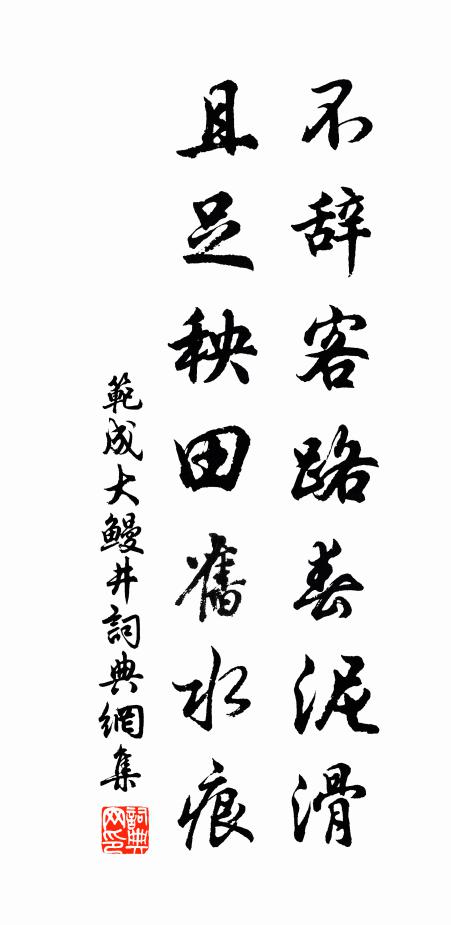 不辞客路春泥滑
且足秧田舊水痕
範成大鰻井詞典網集
詞典网印